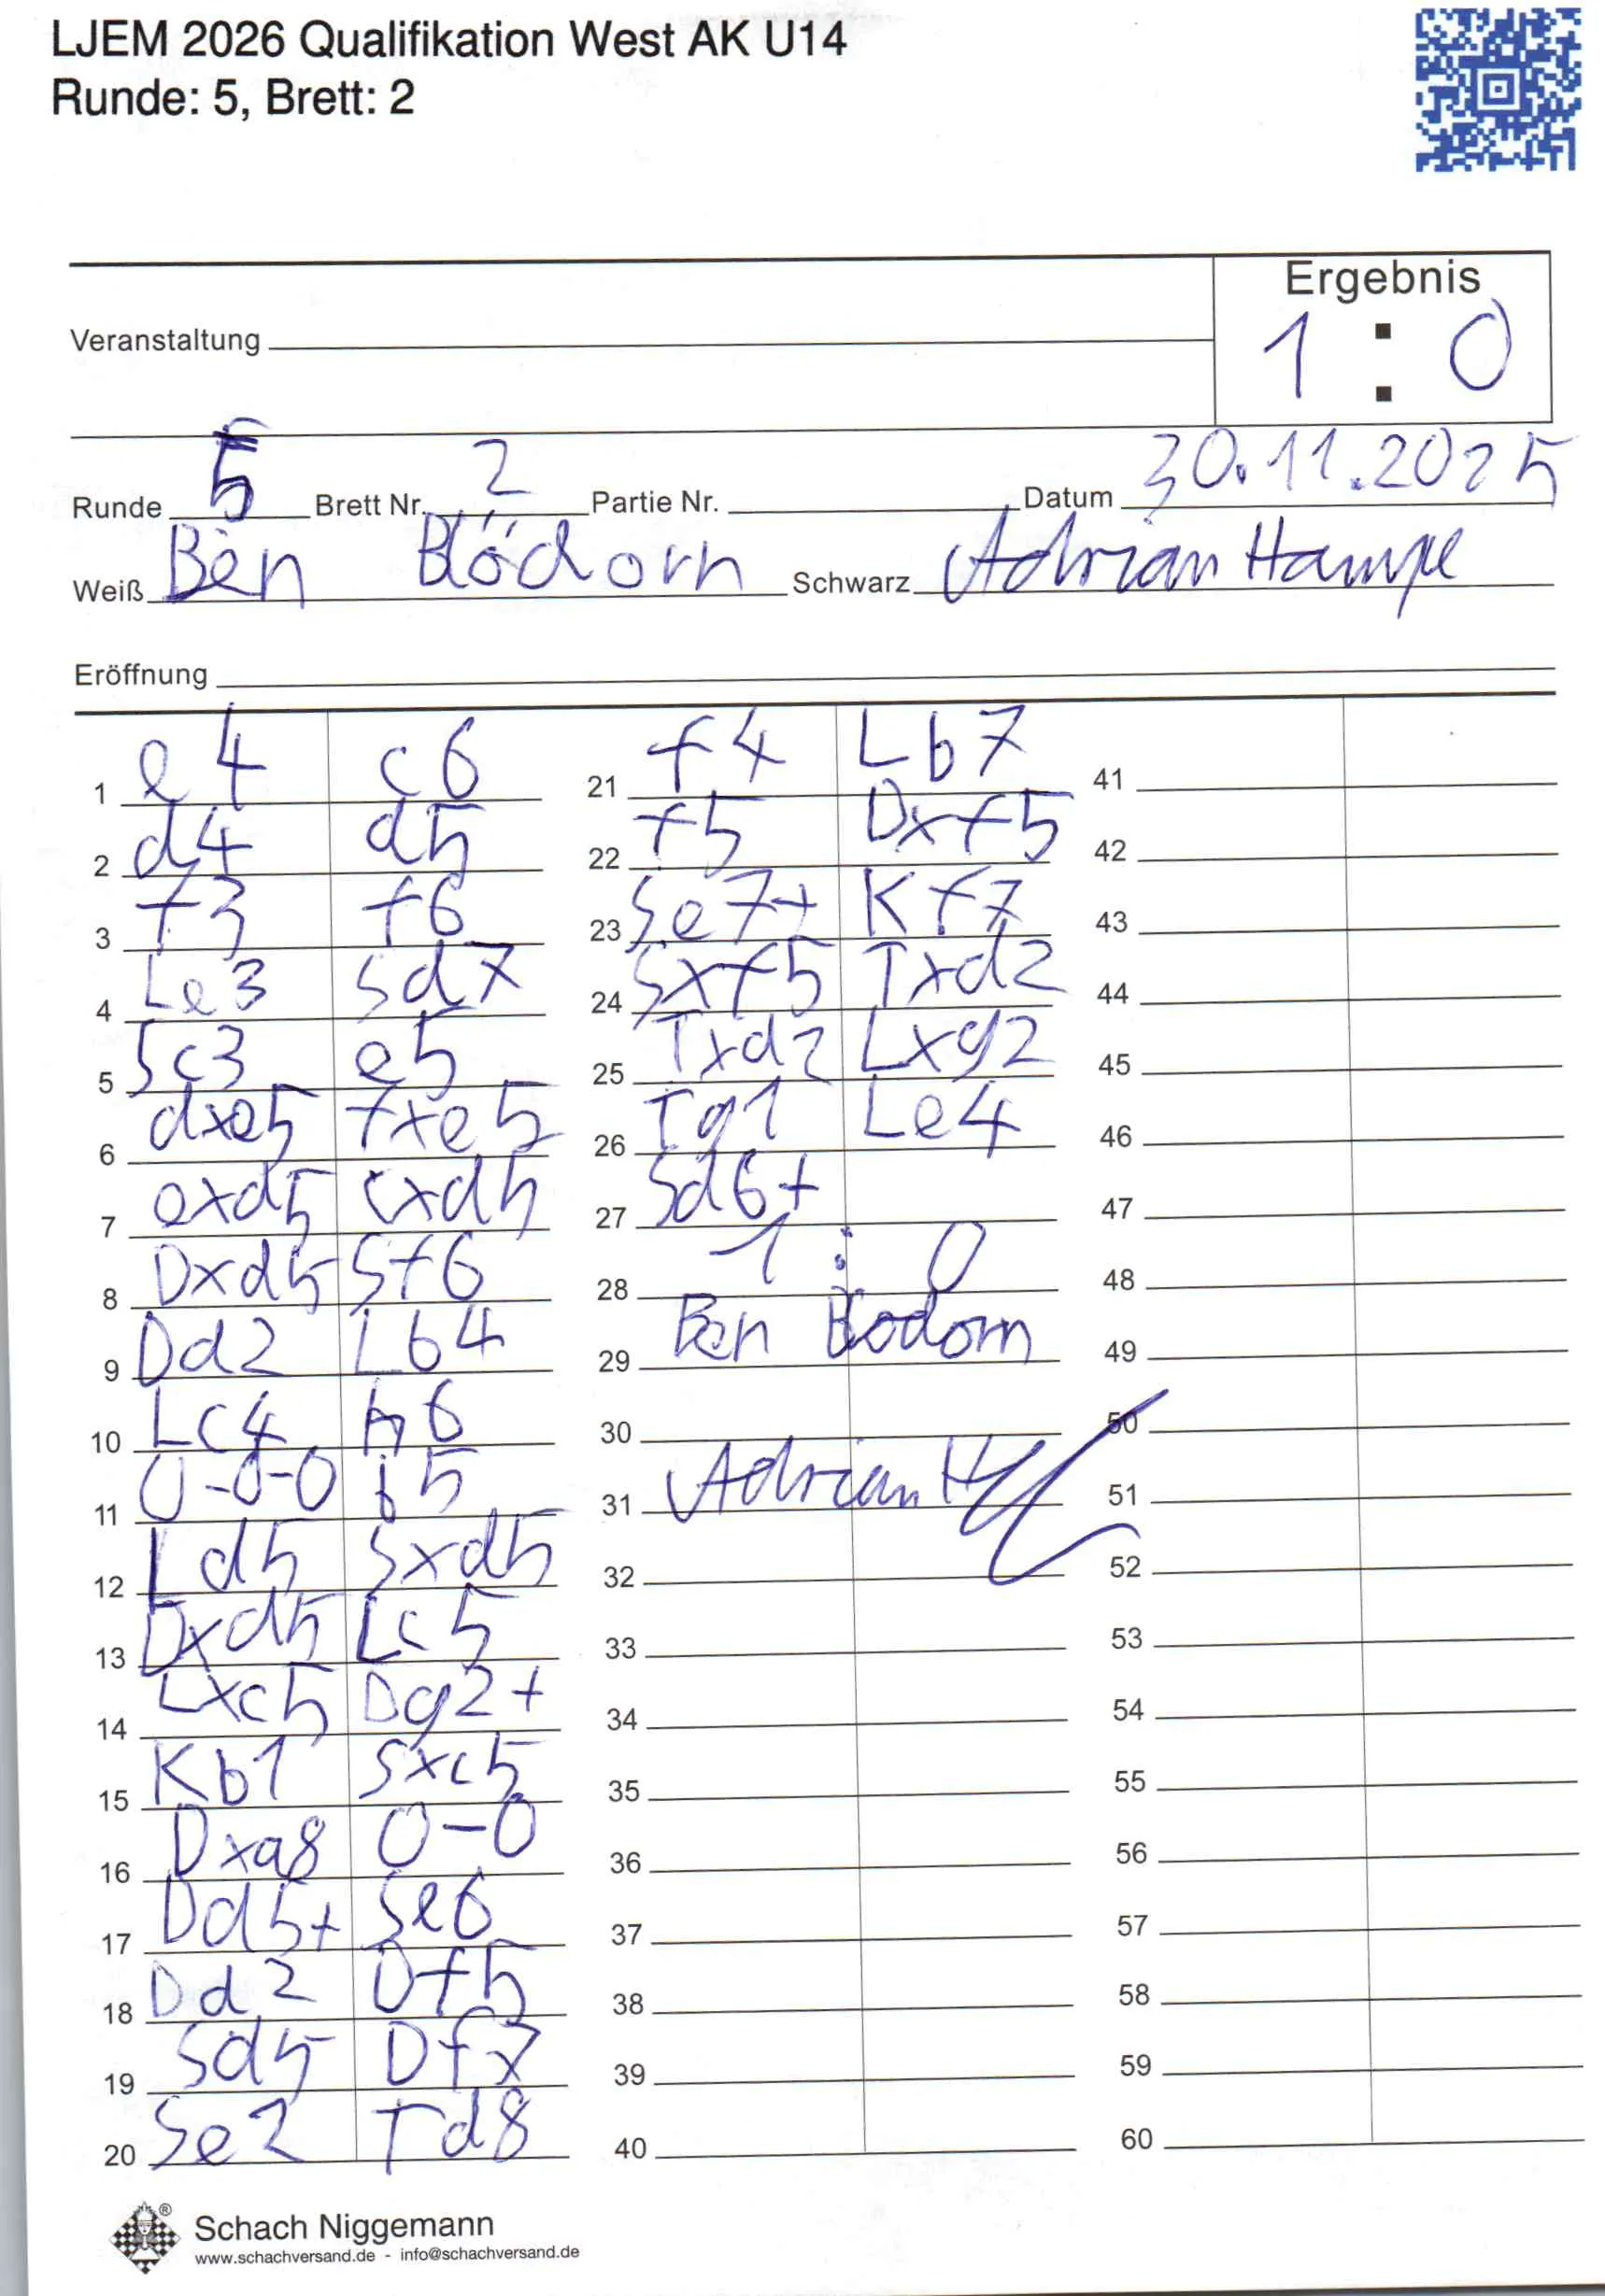 LJEM 2026 Qualifikation West AK U14
Runde: 5, Brett: 2
Ergebnis
1 : 0
Veranstaltung
Runde 5 Brett Nr. 2 Partie Nr. Datum 30.11.2025
Weiß Ben Blödorn Schwarz Adrian Hampe
Eröffnung
1 e4 c6
2 d4 d5
3 f3 f6
4 Le3 Sd7
5 Sc3 e5
6 dxe5 fxe5
7 exd5 cxd5
8 Dxd5 Sf6
9 Dd2 Lb4
10 Lc4 h6
11 0-0-0 b5
12 Ld5 Sxd5
13 Dxd5 Lc5
14 Lxc5 Dg2+
15 Kb1 Sxc5
16 Dxa8 0-0
17 Dd5+ Se6
18 Dd2 Df5
19 Sd5 Df7
20 Se2 Td8
21 f4 Lb7
22 f5 Dxf5
23 Se7+ Kf7
24 Sxf5 Txd2
25 Txd2 Lxg2
26 Tg1 Le4
27 Sd6+
28 1 : 0
29 Ben Blodorn
30
31 Adrian H
32
33
34
35
36
37
38
39
40
41
42
43
44
45
46
47
48
49
50
51
52
53
54
55
56
57
58
59
60
®
Schach Niggemann
www.schachversand.de - info@schachversand.de